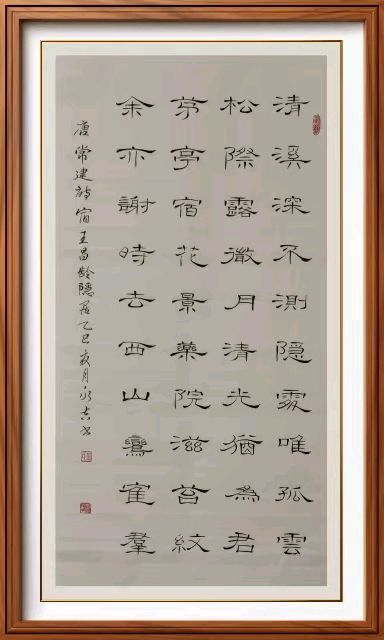 清溪深不測隱處唯孤雲
松際露微月清光猶為君
茅亭宿花景藥院滋苔紋
余亦謝時去西山鸞寉羣
唐常建詩宿王昌齡隱居乙巳夏月永吉书